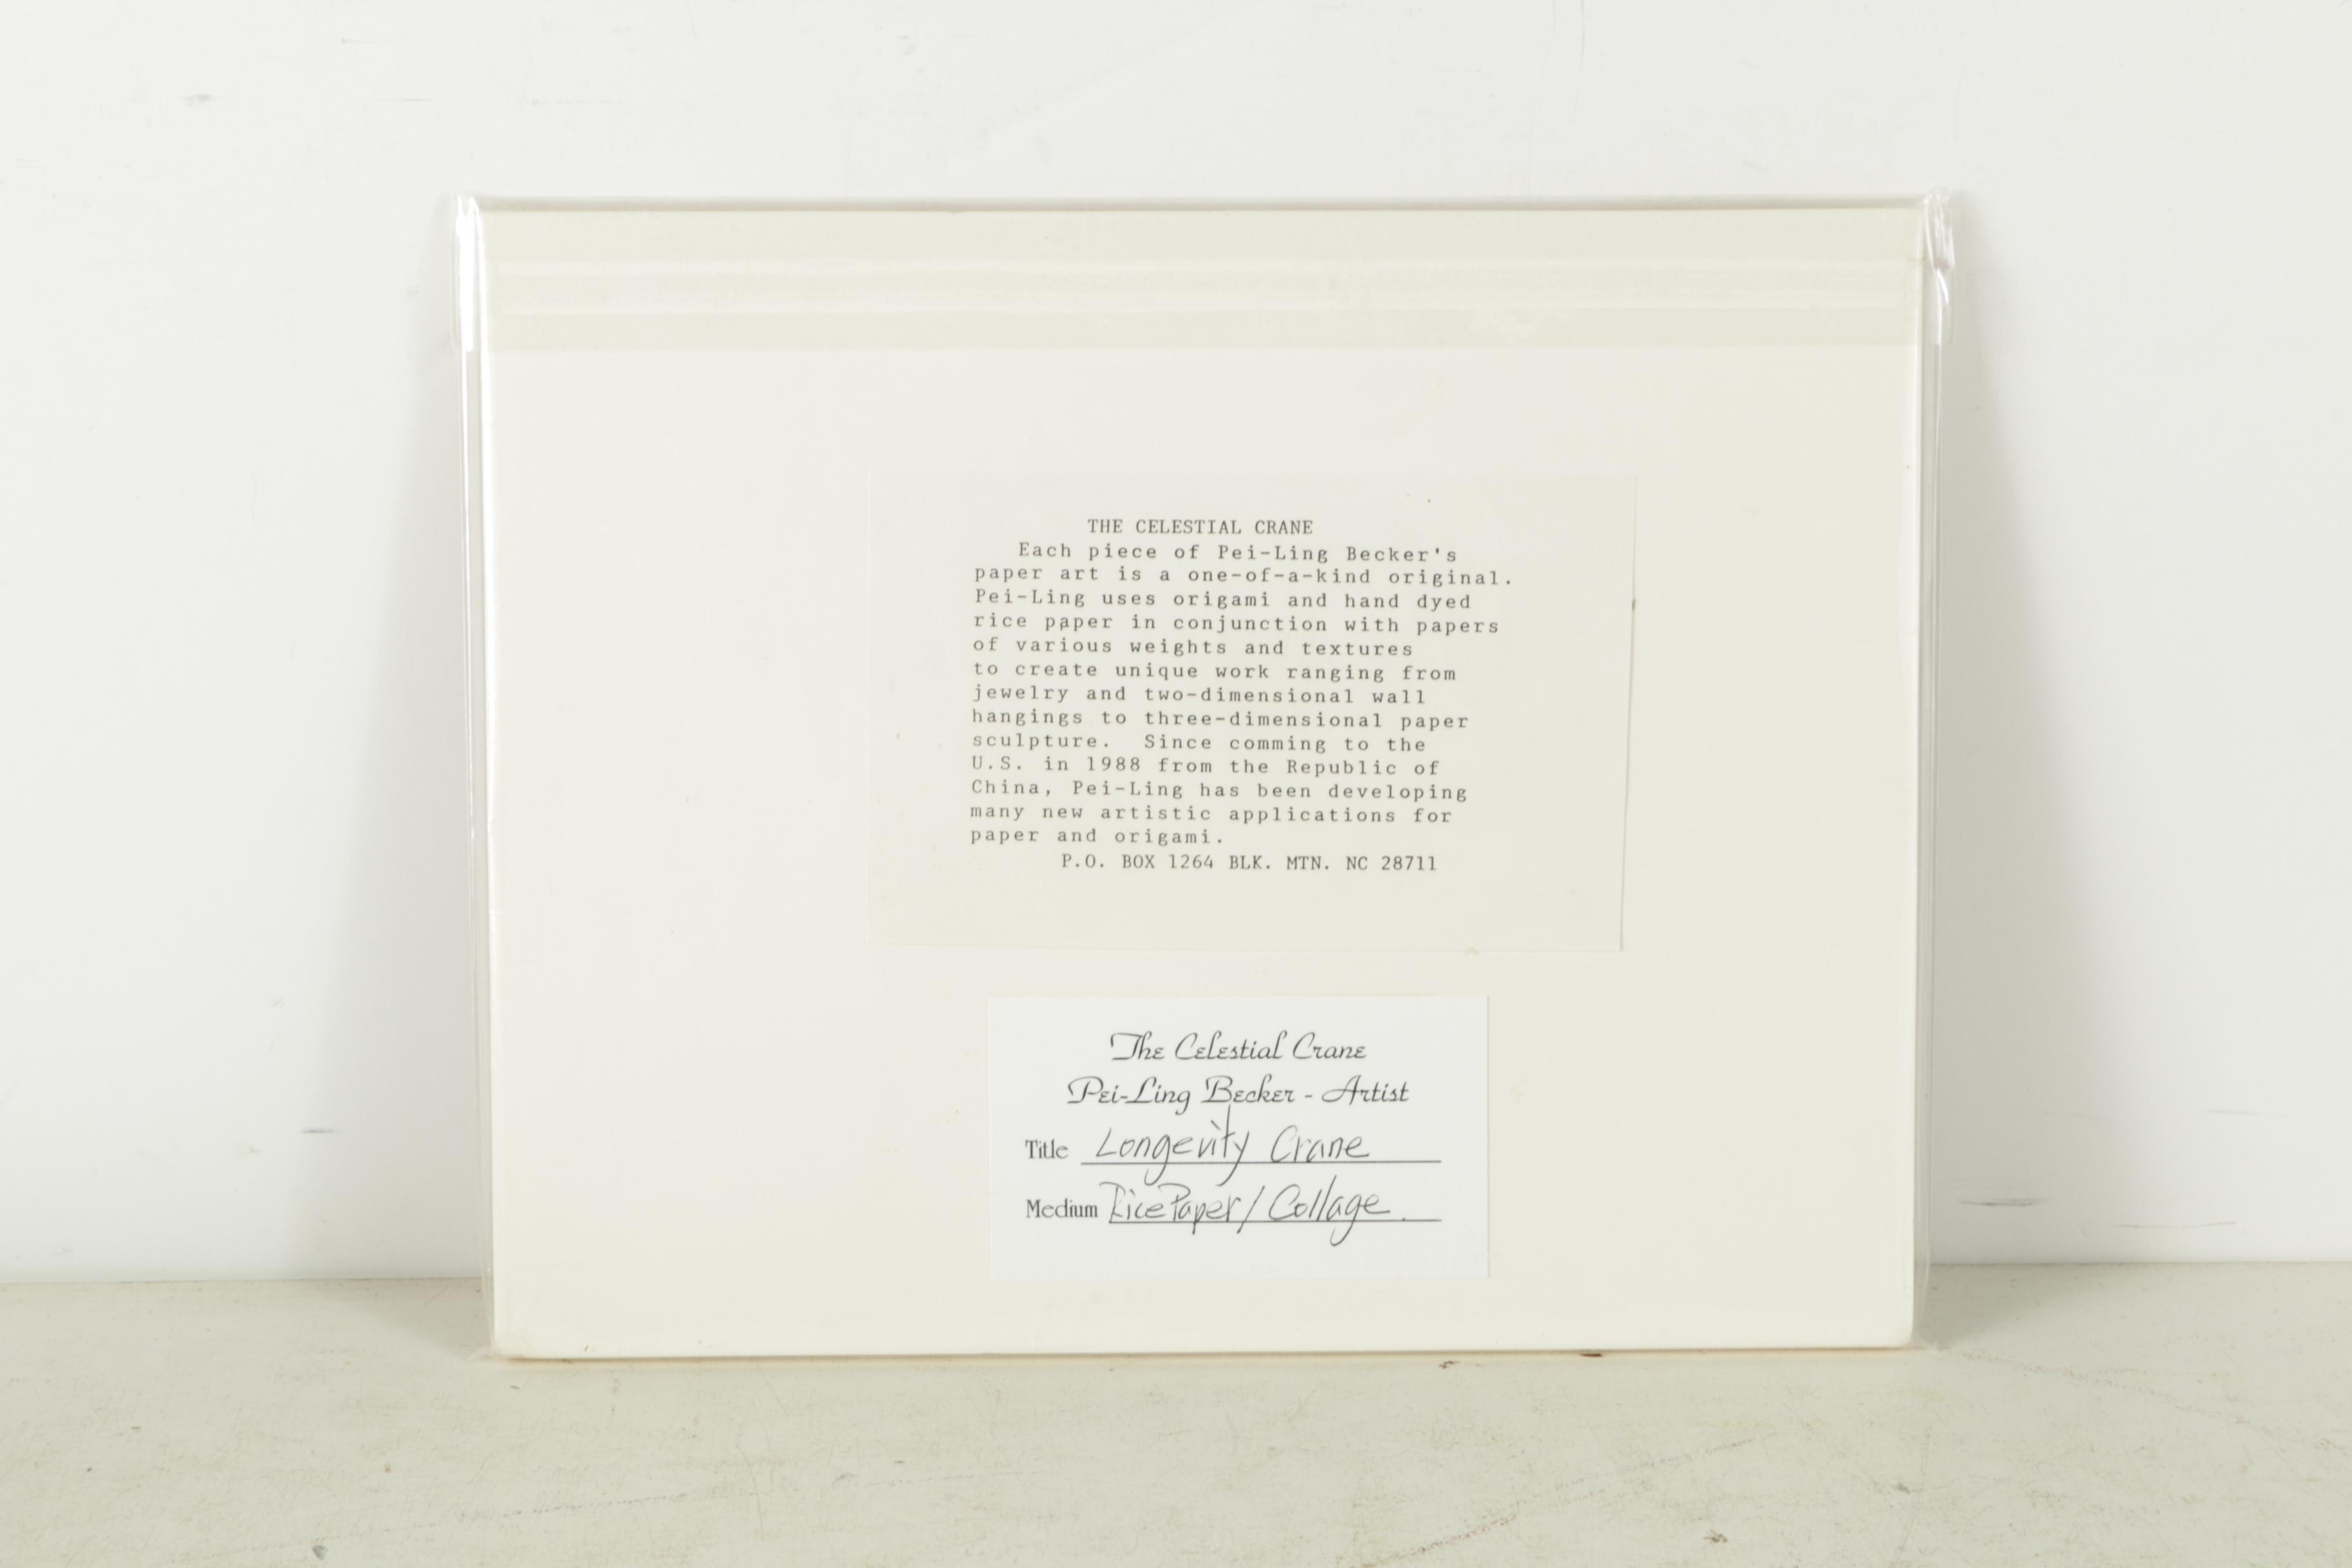 THE CELESTIAL CRANE
Each piece of Pei-Ling Becker's
paper art is a one-of-a-kind original.
Pei-Ling uses origami and hand dyed
rice paper in conjunction with papers
of various weights and textures
to create unique work ranging from
jewelry and two-dimensional wall
hangings to three-dimensional paper
sculpture. Since comming to the
U.S. in 1988 from the Republic of
China, Pei-Ling has been developing
many new artistic applications for
paper and origami.
P.O. BOX 1264 BLK. MTN. NC 28711
The Celestial Crane
Pei-Ling Becker - Artist
Title Longevity Crane
Medium Rice Paper / Collage.